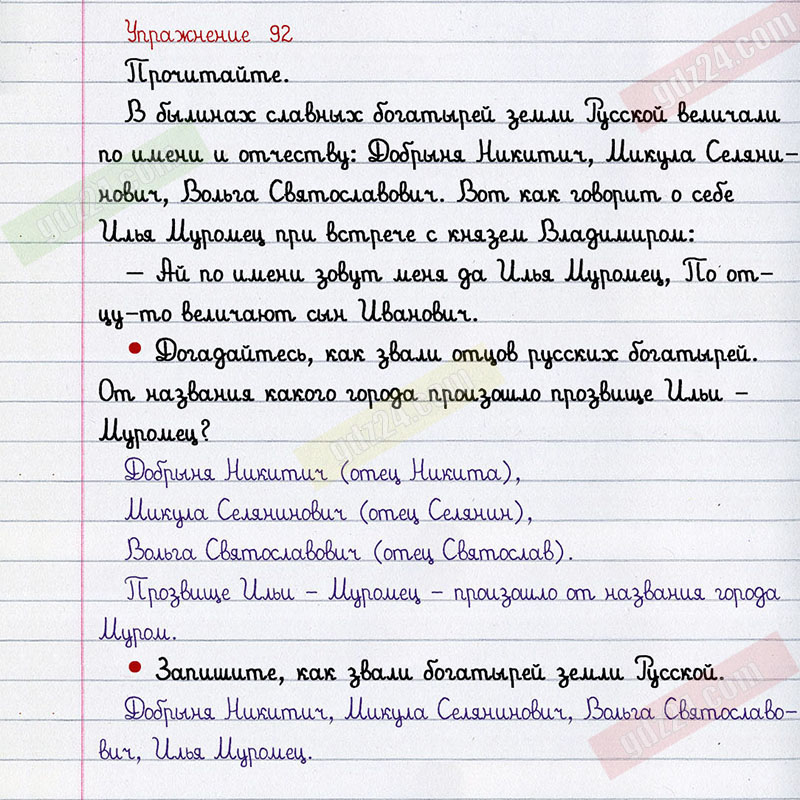 Упражнение 92
Прочитайте.
В былинах славных богатырей земли Русской величали
по имени и отчеству: Добрыня Никитич, Микула Селяни-
нович, Вольга Святославович. Вот как говорит о себе
Илья Муромец при встрече с князем Владимиром:
– Ай по имени зовут меня да Илья Муромец, По от-
цу-то величают сын Иванович.
• Догадайтесь, как звали отцов русских богатырей.
От названия какого города произошло прозвище Ильи –
Муромец?
Добрыня Никитич (отец Никита),
Микула Селянинович (отец Селянин),
Вольга Святославович (отец Святослав).
Прозвище Ильи – Муромец – произошло от названия города
Муром.
• Запишите, как звали богатырей земли Русской.
Добрыня Никитич, Микула Селянинович, Вольга Святославо-
вич, Илья Муромец.
gdz24.com
gdz24.com
gdz24.com
gdz24.com